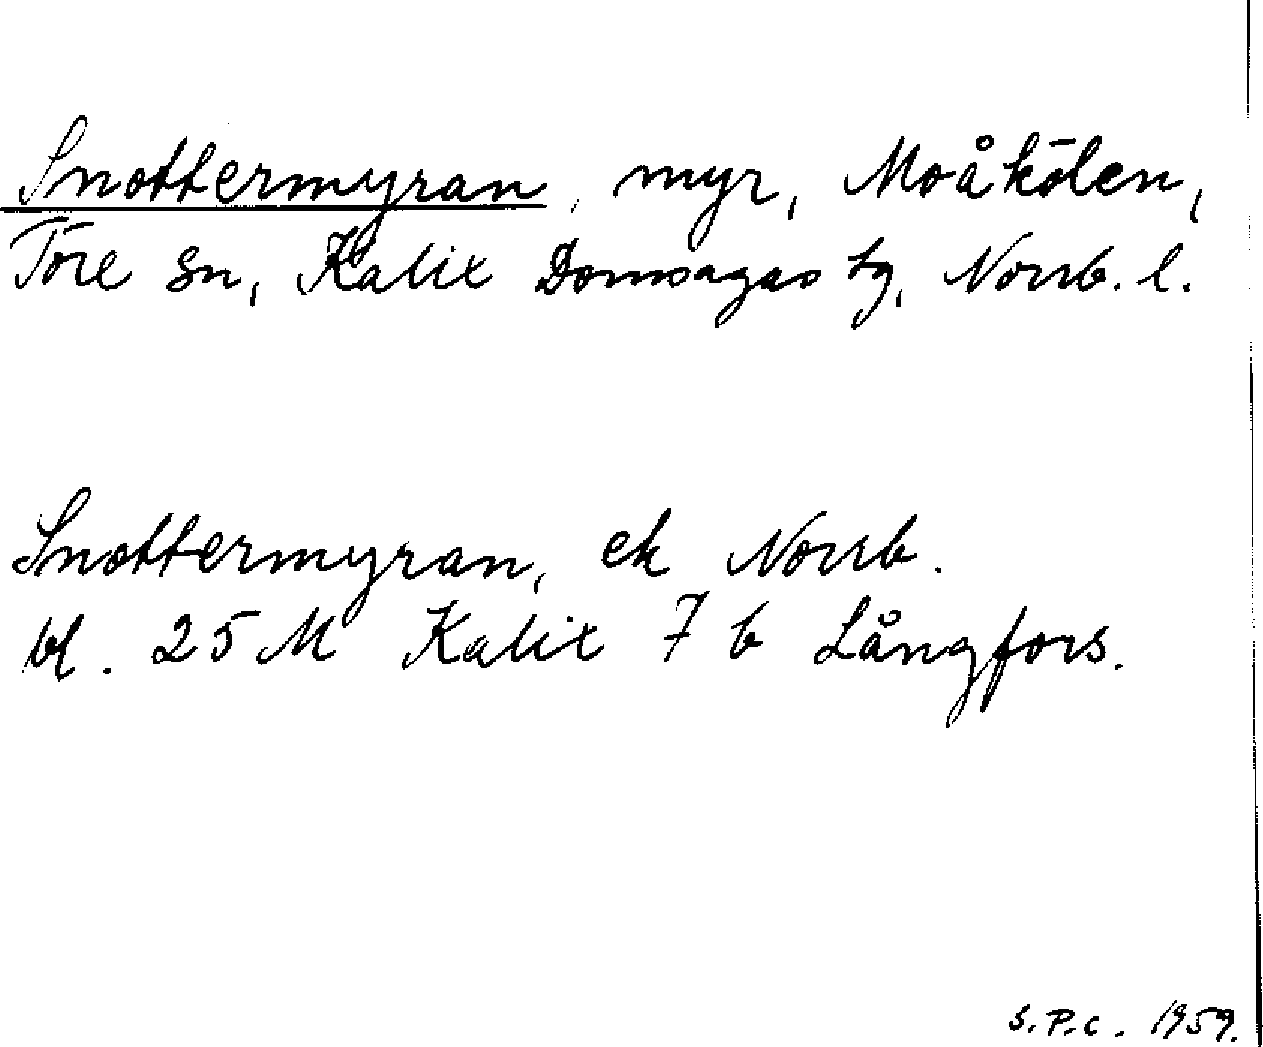 Snottermyran, myr, Moåkölen,
Töre sn, Kalix Domsagas tg, Norrb. l.
Snottermyran, ek Norrb.
bl. 25 M Kalix 7 b Långfors.
S.P.C. 1959.